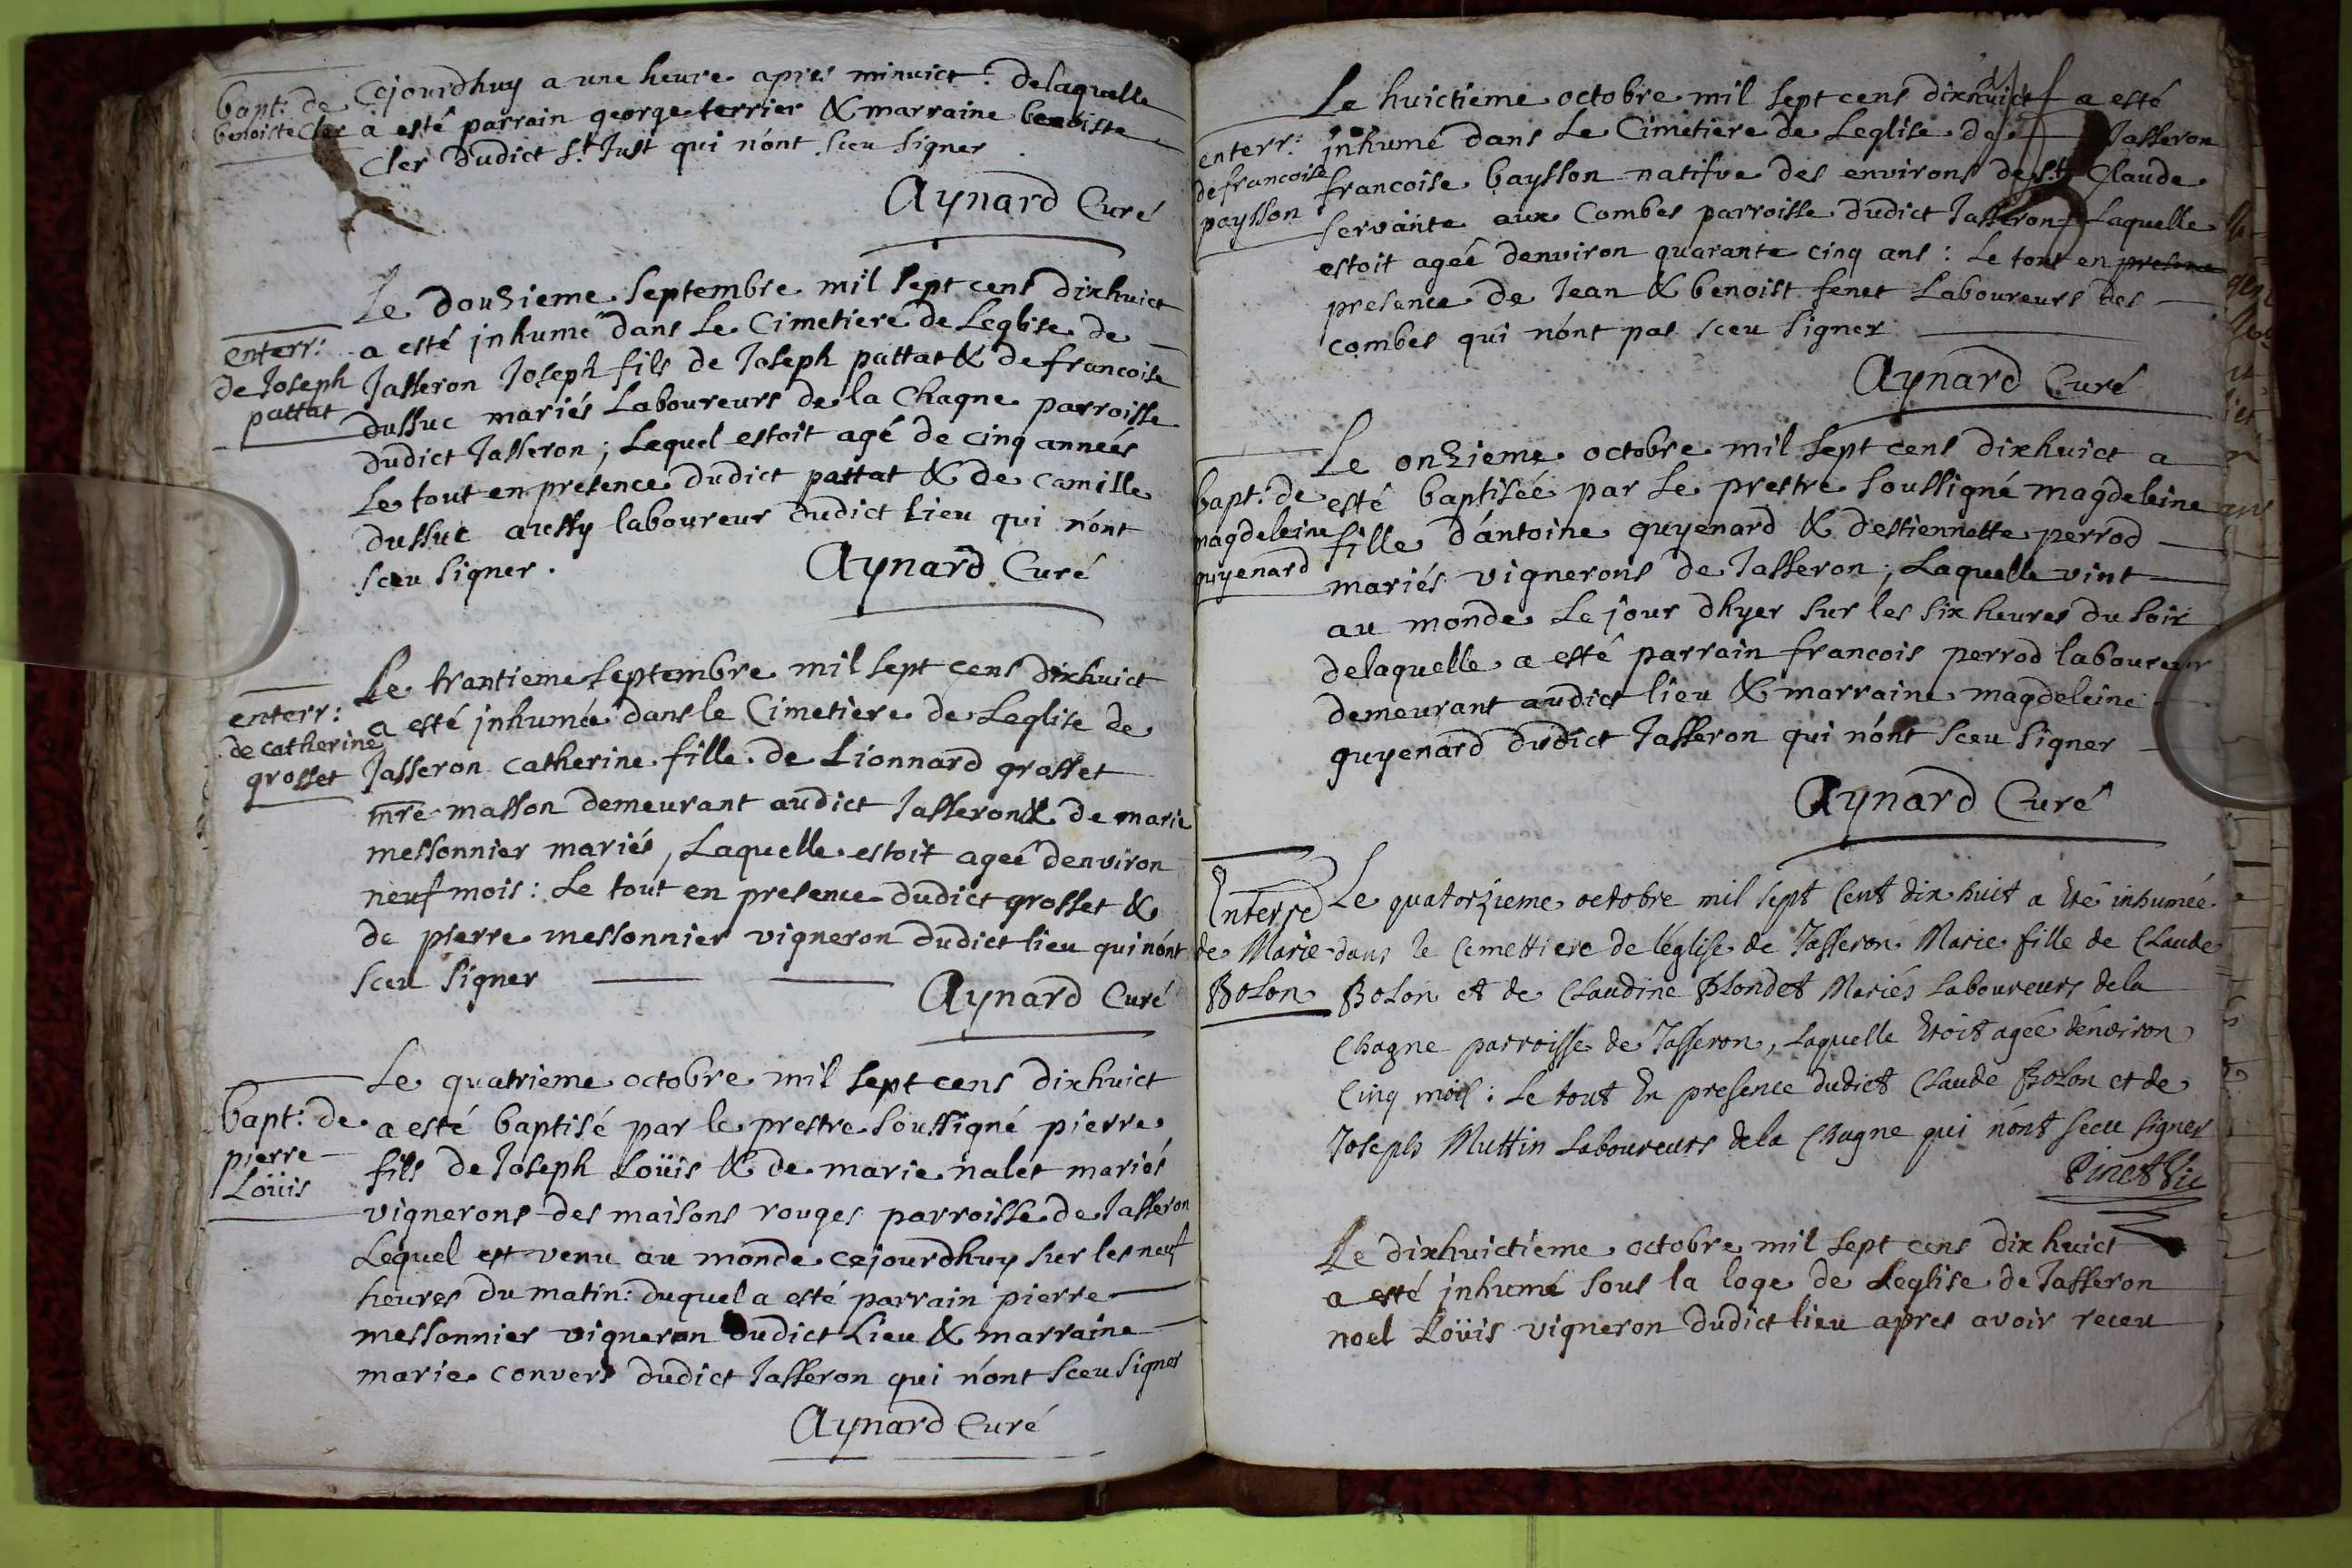 bapt: de
benoiste Cler
Cejourdhuy a une heure apres minuict: delaquelle
a esté parrain george terrier & marraine benoiste
Cler dudict St Just qui nónt sceu signer
Aynard Curé
enterr:
de Joseph
pattat
Le douzieme Septembre mil sept cens dixhuict
a esté jnhumé dans Le Cimetiere de Leglise de
Jasseron Joseph fils de Joseph pattat & de francoise
dussuc mariés Laboureurs de la Chagne parroisse
dudict Jasseron; Lequel estoit agé de cinq anneés
Le tout en presence dudict pattat & de camille
dussuc aussy laboureur dudict Lieu qui nónt
sceu signer.
Aynard Curé
enterr:
de catherine
grosset
Le trantieme septembre mil sept cens dixhuict
a esté jnhumée dans le Cimetiere de Leglise de
Jasseron catherine fille de Lionnard grosset
mre masson demeurant audict Jasseron & de marie
messonnier mariés, Laquelle estoit ageé denviron
neuf mois: Le tout en presence dudict grosset &
de pierre messonnier vigneron dudict lieu qui nónt
sceu signer
Aynard Curé
bapt: de
pierre
Loüis
Le quatrieme octobre mil sept cens dixhuict
a esté baptisé par le prestre soussigné pierre
fils de Joseph Loüis & de marie nalet mariés
vignerons des maisons rouges parroisse de Jasseron
Lequel est venu au monde cejourdhuy sur les neuf
heures du matin: duquel a esté parrain pierre
messonnier vigneron dudict Lieu & marraine
marie convers dudict Jasseron qui nónt sceu signer
Aynard Curé
enterr:
de francoise
paysson
Le huictieme octobre mil sept cens dixhuict a esté
jnhumé dans Le Cimetiere de Leglise de Jasseron
francoise baysson natifve des environs de St Claude
servante aux Combes parroisse dudict Jasseron Laquelle
estoit ageé denviron quarante cinq ans: Le tout en presence
presence de Jean & benoist fenet Laboureurs des
combes qui nónt pas sceu signer
Aynard Curé
bapt: de
magdeleine
guyenard
Le onzieme octobre mil sept cens dixhuict a
esté baptisée par Le prestre soussigné magdeleine
fille dántoine guyenard & destiennette perrod
mariés vignerons de Jasseron; Laquelle vint
au monde Le jour dhyer sur les six heures du soir
delaquelle a esté parrain francois perrod laboureur
demeurant audict lieu & marraine magdeleine
guyenard dudict Jasseron qui nónt sceu signer
Aynard Curé
Enterre
de Marie
Bolon
Le quatorzieme octobre mil sept cent dix huit a été inhumée
dans le cemettiere de léglise de Jasseron Marie fille de Claude
Bolon et de Claudine Blondet Mariés Laboureurs de la
Chagne parroisse de Jasseron, Laquelle étoit agée dénviron
cinq mois: Le tout en presence dudict Claude Bolon et de
Joseph Muttin Laboureurs de la Chagne qui nónt sceu signer
Pinet Vic
Le dixhuictieme octobre mil sept cens dix huict
a esté jnhumé sous la loge de Leglise de Jasseron
noel Loüis vigneron dudict lieu apres avoir receu